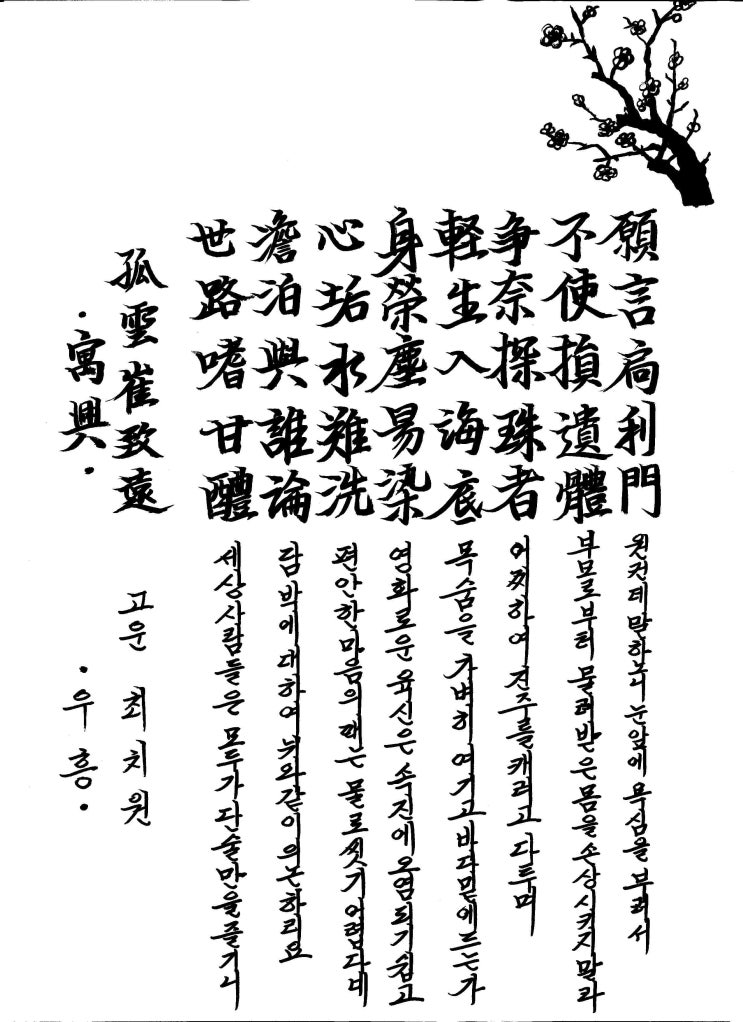 願言扃利門 원컨데 말하노니 눈앞에 욕심을 부려서
不使損遺體 부모로부터 물려받은 몸을 손상시키지말라
争奈探珠者 어찌하여 진주를 캐려고 다투며
軽生入海底 목숨을 가벼히 여기고 바다밑에 드는가
身榮塵易染 영화로운 육신은 속진에 오염되기 쉽고
心垢水難洗 편안한 마음의 때는 물로 씻기 어렵다네
澹泊與誰論 담박에 대하여 뉘와같이 의논하리요
世路嗜甘醴 세상사람들은 모두가 단술만을 즐기니
孤雲崔致遠 고운 최치원
·寓興· ·우흥·